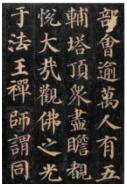 部會逾萬人有五
輔塔頂眾盡瞻覩
恱大哉觀佛之光
于法王禪師謂同